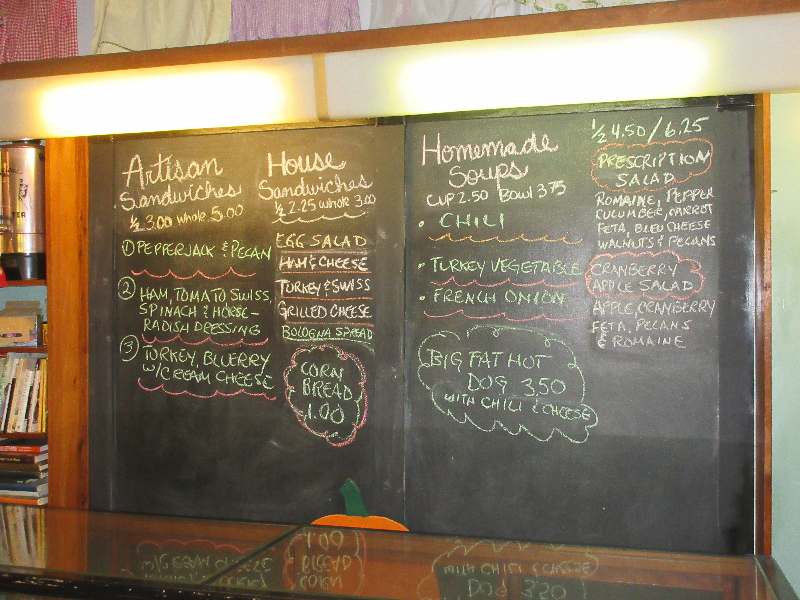 Artisan
Sandwiches
½ 3.00 whole 5.00
① PEPPERJACK & PECAN
② HAM, TOMATO SWISS,
SPINACH & HORSE-
RADISH DRESSING
③ TURKEY, BLUERRY
W/CREAM CHEESE
House
Sandwiches
½ 2.25 whole 3.00
EGG SALAD
HAM & CHEESE
TURKEY & SWISS
GRILLED CHEESE
BOLOGNA SPREAD
CORN
BREAD
1.00
Homemade
Soups
CUP 2.50 Bowl 3.75
• CHILI
• TURKEY VEGETABLE
• FRENCH ONION
BIG FAT HOT
DOG 3.50
WITH CHILI & CHEESE
½ 4.50/6.25
PRESCRIPTION
SALAD
ROMAINE, PEPPER
CUCUMBER, CARROT
FETA, BLEU CHEESE
WALNUTS & PECANS
CRANBERRY
APPLE SALAD
APPLE, CRANBERRY
FETA, PECANS
& ROMAINE